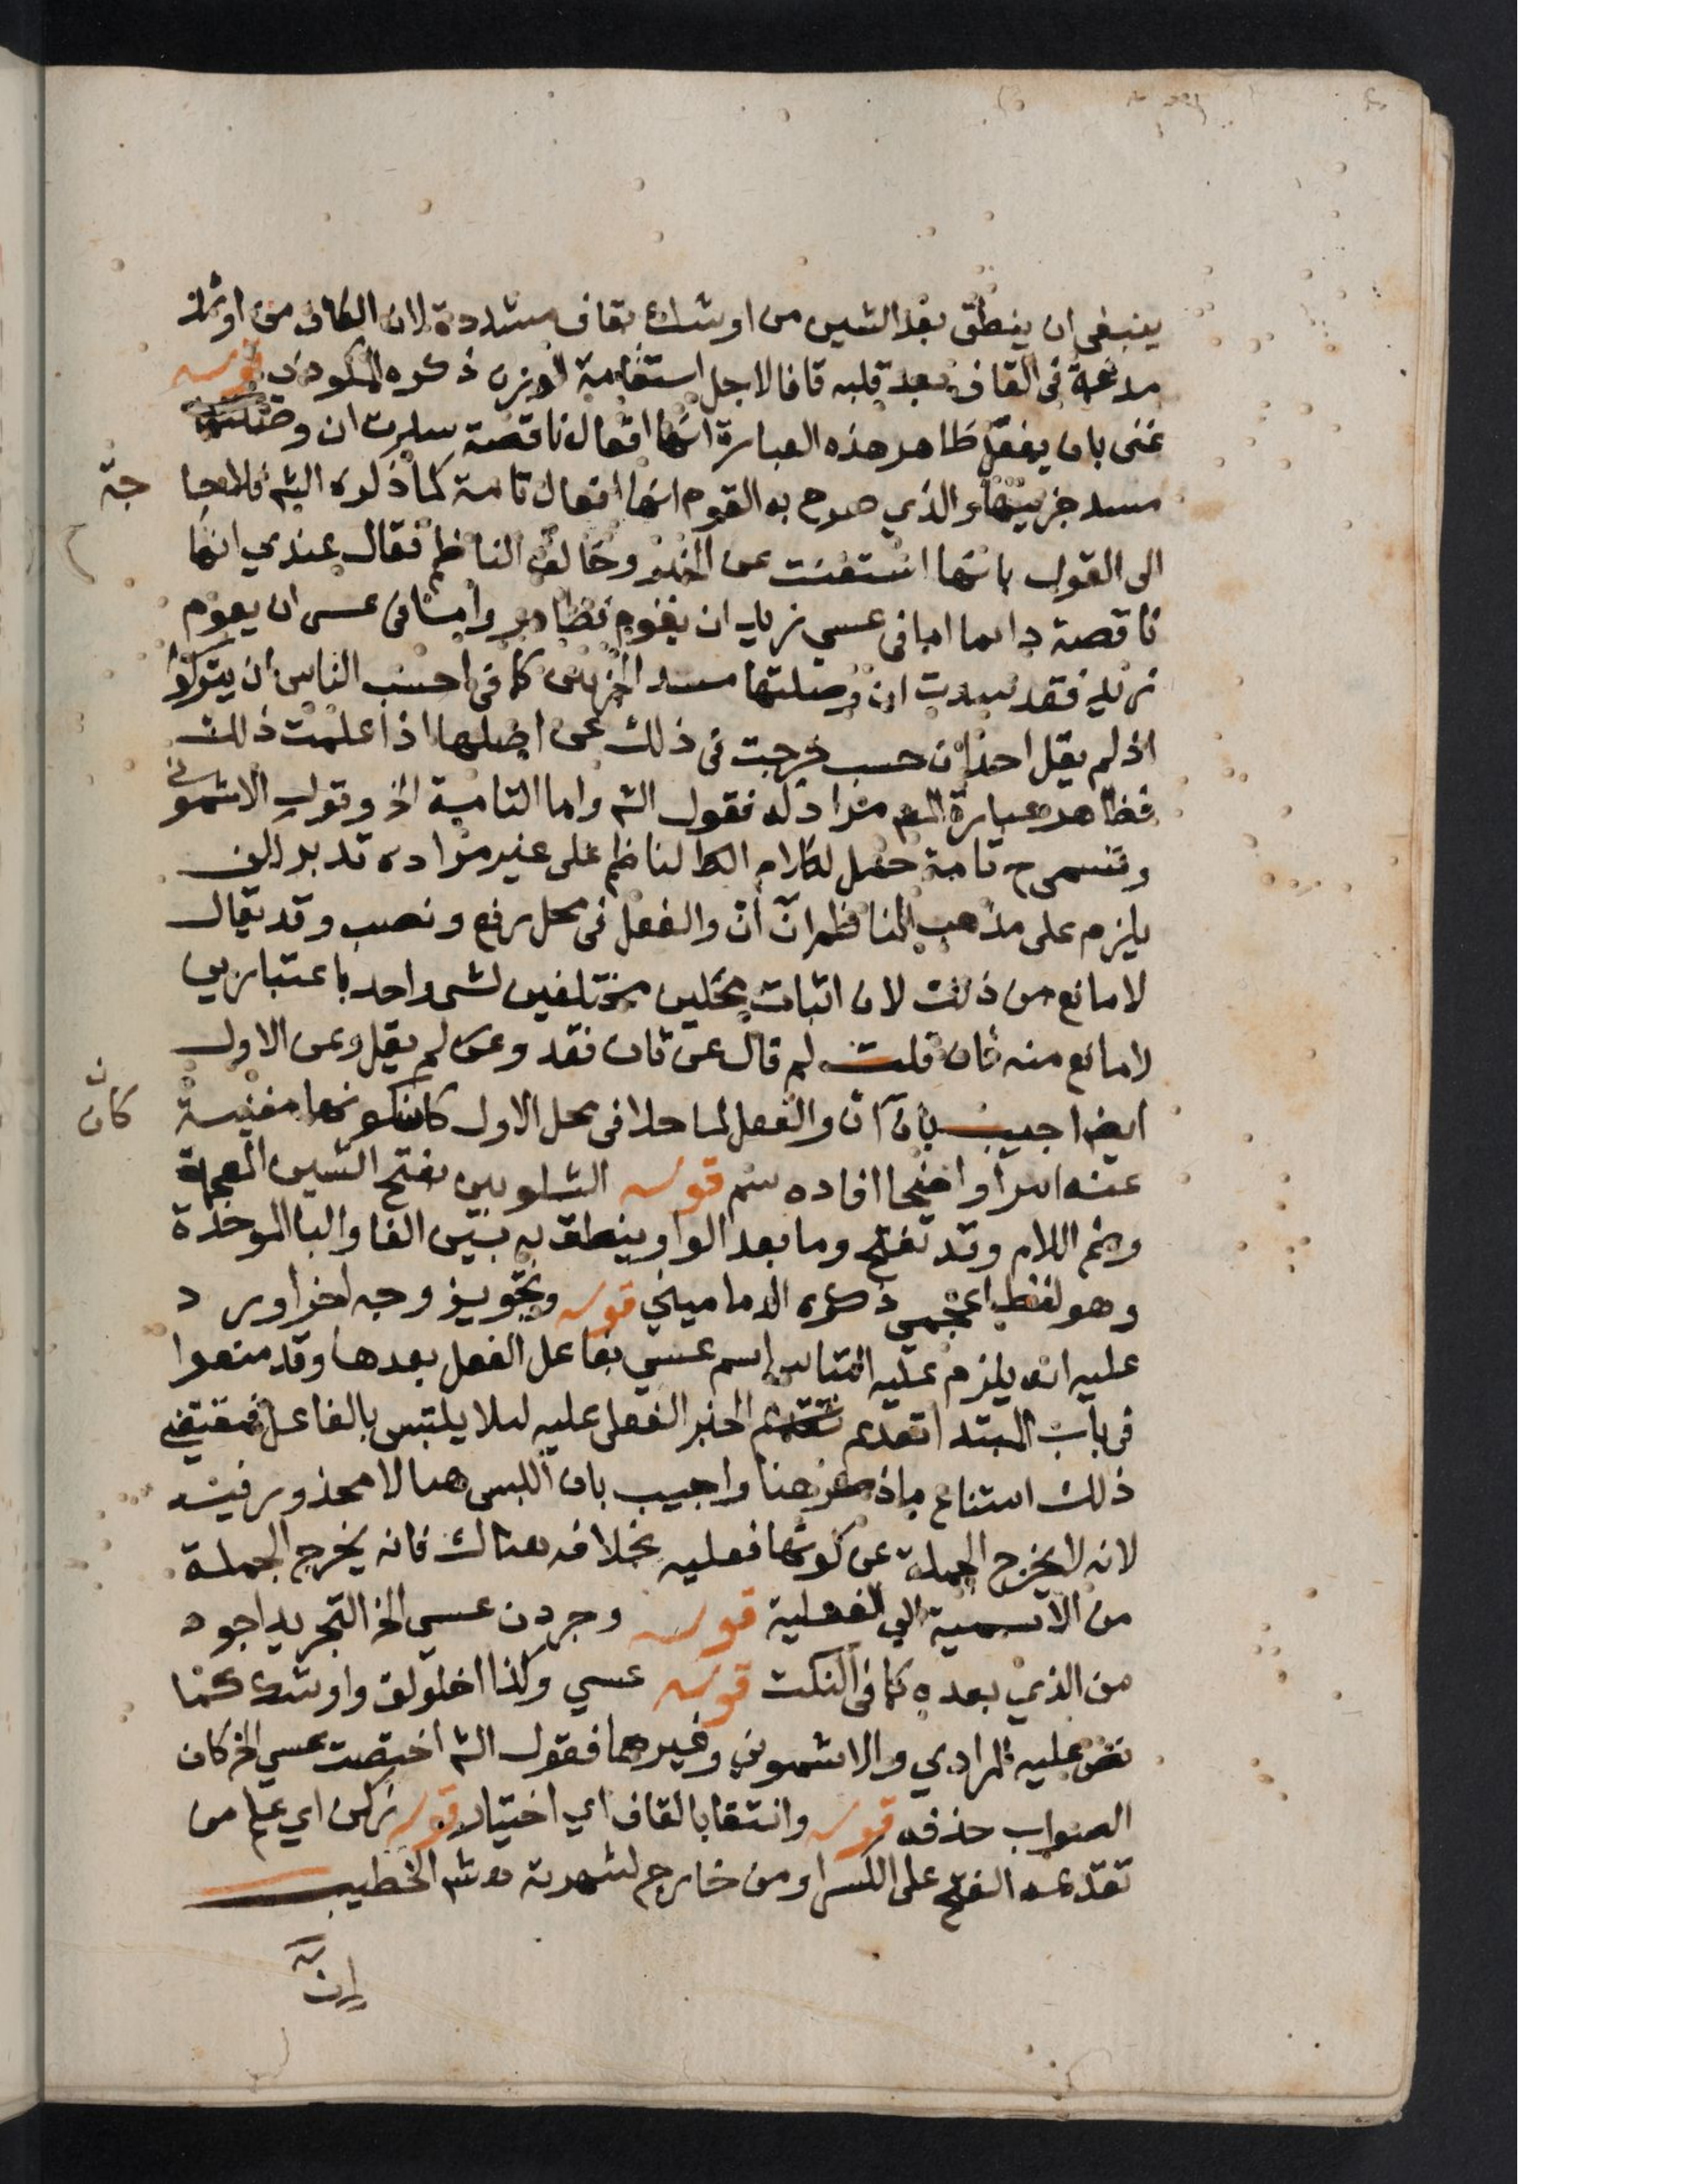 ينبغي ان ينطق بعد الشين من اوشك بقاف مشددة لان الكاف من اوشك
مدغمة في القاف بعد قلبه قافا لاجل استقامة الوزن ذكره المكودي قوله
غنى بان يفعل ظاهر هذه العبارة انها افعال ناقصة سدت ان وصلتها
مسد جزييها والذي صرح به القوم انها افعال تامة كما ذكره الشم فلا حا جة
الى القول بانها استغنت عن الخبر وخالف الناظم فقال عندي انها
ناقصة دايما اما في عسي زيد ان يقوم فظاهر واما في عسى ان يقوم
زيد فقد سدت ان وصلتها مسد الجزيين كما في احسب الناس ان يتركوا
اذ لم يقل احد ان حسب خرجت في ذلك عن اصلها اذا علمت ذلك
فظاهر عبارة المص مراد له فقول الشم واما التامة الخ وقول الاشموني
وتسمى ح تامة حمل لكلام الناظم على غير مراده تدبر
يلزم على مذهب الناظم ان أن والفعل في محل رفع ونصب وقد يقال
لا مانع من ذلك لان اثبات محلين مختلفين لشى واحد باعتبارين
لا مانع منه فان قلت لم قال عن ثان فقد وعن لم يقل وعن الاول
ايضا اجيب بان أن والفعل لما حلا في محل الاول كان كونها مغنية
كان
عنه امرا واضحا افاده سم قوله الشلوبين بفتح الشين المعجمة
وضم اللام وقد تفتح وما بعد الواو ينطق به بين الفا والبا الموحدة
وهو لفظ اعجمي ذكره الدماميني قوله وتجويز وجه اخر اورد
عليه انه يلزم عليه التباس اسم عسي بفاعل الفعل بعدها وقد منعوا
في باب المبتدا تقديم الخبر الفعلى عليه ليلا يلتبس بالفاعل فمقتضى
ذلك امتناع ماذكر هنا واجيب بان اللبس هنا لا محذور فيه
لانه لا يخرج الجملة عن كونها فعليه بخلافه هنالك فانه يخرج الجملة
من الاسمية الي الفعلية قوله وجردن عسي الخ التجريد اجود
من الذي بعده كما في النكت قوله عسي وكذا اخلولق واوشك كما
نص عليه المرادي والاشموني وغيرهما فقول الشم اختصت عسي الخ كان
الصواب حذفه قوله وانتقا بالقاف اي اختيار قوله زكن اي علم من
تقديمه الفتح على الكسر او من خارج لشهرته ه شم الخطيب
إنّ